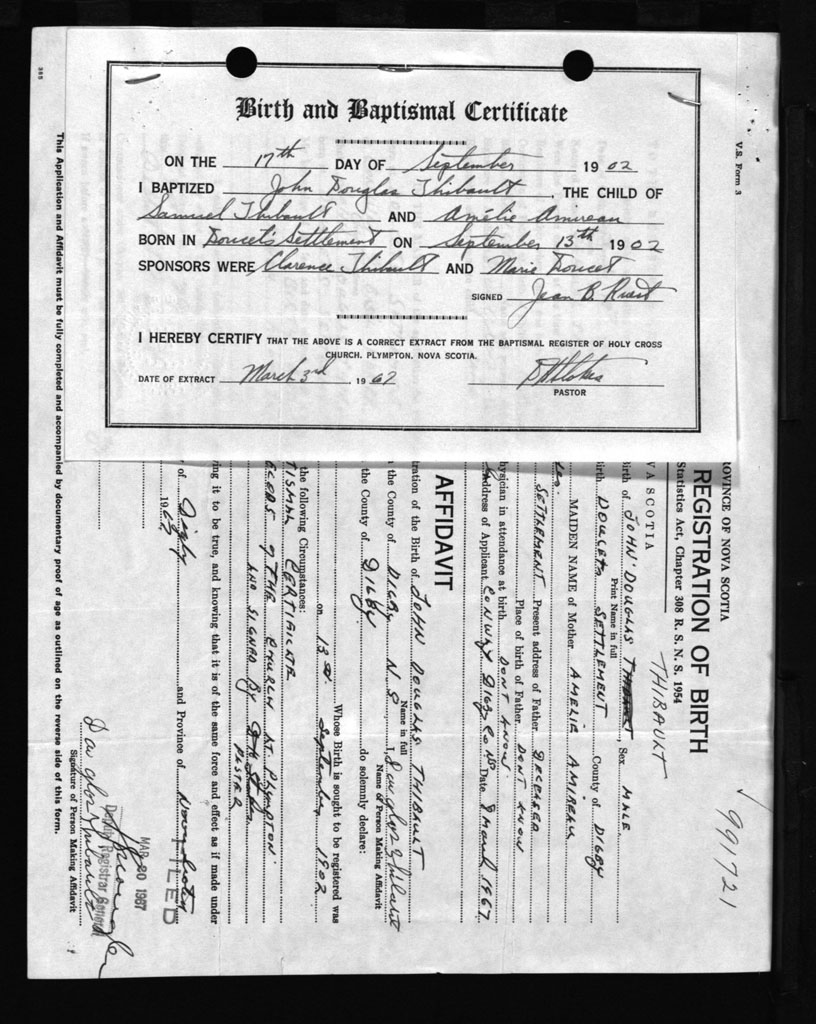 Birth and Baptismal Certificate
ON THE 17th DAY OF September 1902
I BAPTIZED John Douglas Thibault, THE CHILD OF
Samuel Thibault AND Amélie Amireau
BORN IN Doucet's Settlement ON September 13th 1902
SPONSORS WERE Clarence Thibault AND Marie Doucet
SIGNED Jean B.
I HEREBY CERTIFY THAT THE ABOVE IS A CORRECT EXTRACT FROM THE BAPTISMAL REGISTER OF HOLY CROSS
CHURCH, PLYMPTON, NOVA SCOTIA.
DATE OF EXTRACT March 3rd 1967
PASTOR
385
V.S. Form 3
991721
ROVINCE OF NOVA SCOTIA
REGISTRATION OF BIRTH
Statistics Act, Chapter 308 R. S. N. S. 1954
VA SCOTIA
THIBAULT
irth of JOHN DOUGLAS, Sex MALE
Print Name in full
irth DOUCETS SETTLEMENT County of DIGBY
MAIDEN NAME of Mother AMELIE AMIREAU
SETTLEMENT Present address of Father DECEASED
Place of birth of Father DONT KNOW
hysician in attendance at birth DONT KNOW
Address of Applicant CONWAY DIGBY CO NS Date 8 March 1967
AFFIDAVIT
tration of the Birth of JOHN DOUGLAS THIBAULT
Name in full
the County of DIGBY N S I, Douglas Thibault
Name of Person Making Affidavit
the County of DIGBY do solemnly declare:
Whose Birth is sought to be registered was
on 13 September 1902
the following Circumstances:
TISMAL CERTIFICATE
OF THE CHURCH AT PLYMPTON
AND SIGNED BY
PASTER
ving it to be true, and knowing that it is of the same force and effect as if made under
of Digby and Province of Nova Scotia
1967
FILED
MAR 20 1967
Deputy Registrar General
Douglas Thibault
Signature of Person Making Affidavit
This Application and Affidavit must be fully completed and accompanied by documentary proof of age as outlined on the reverse side of this form.